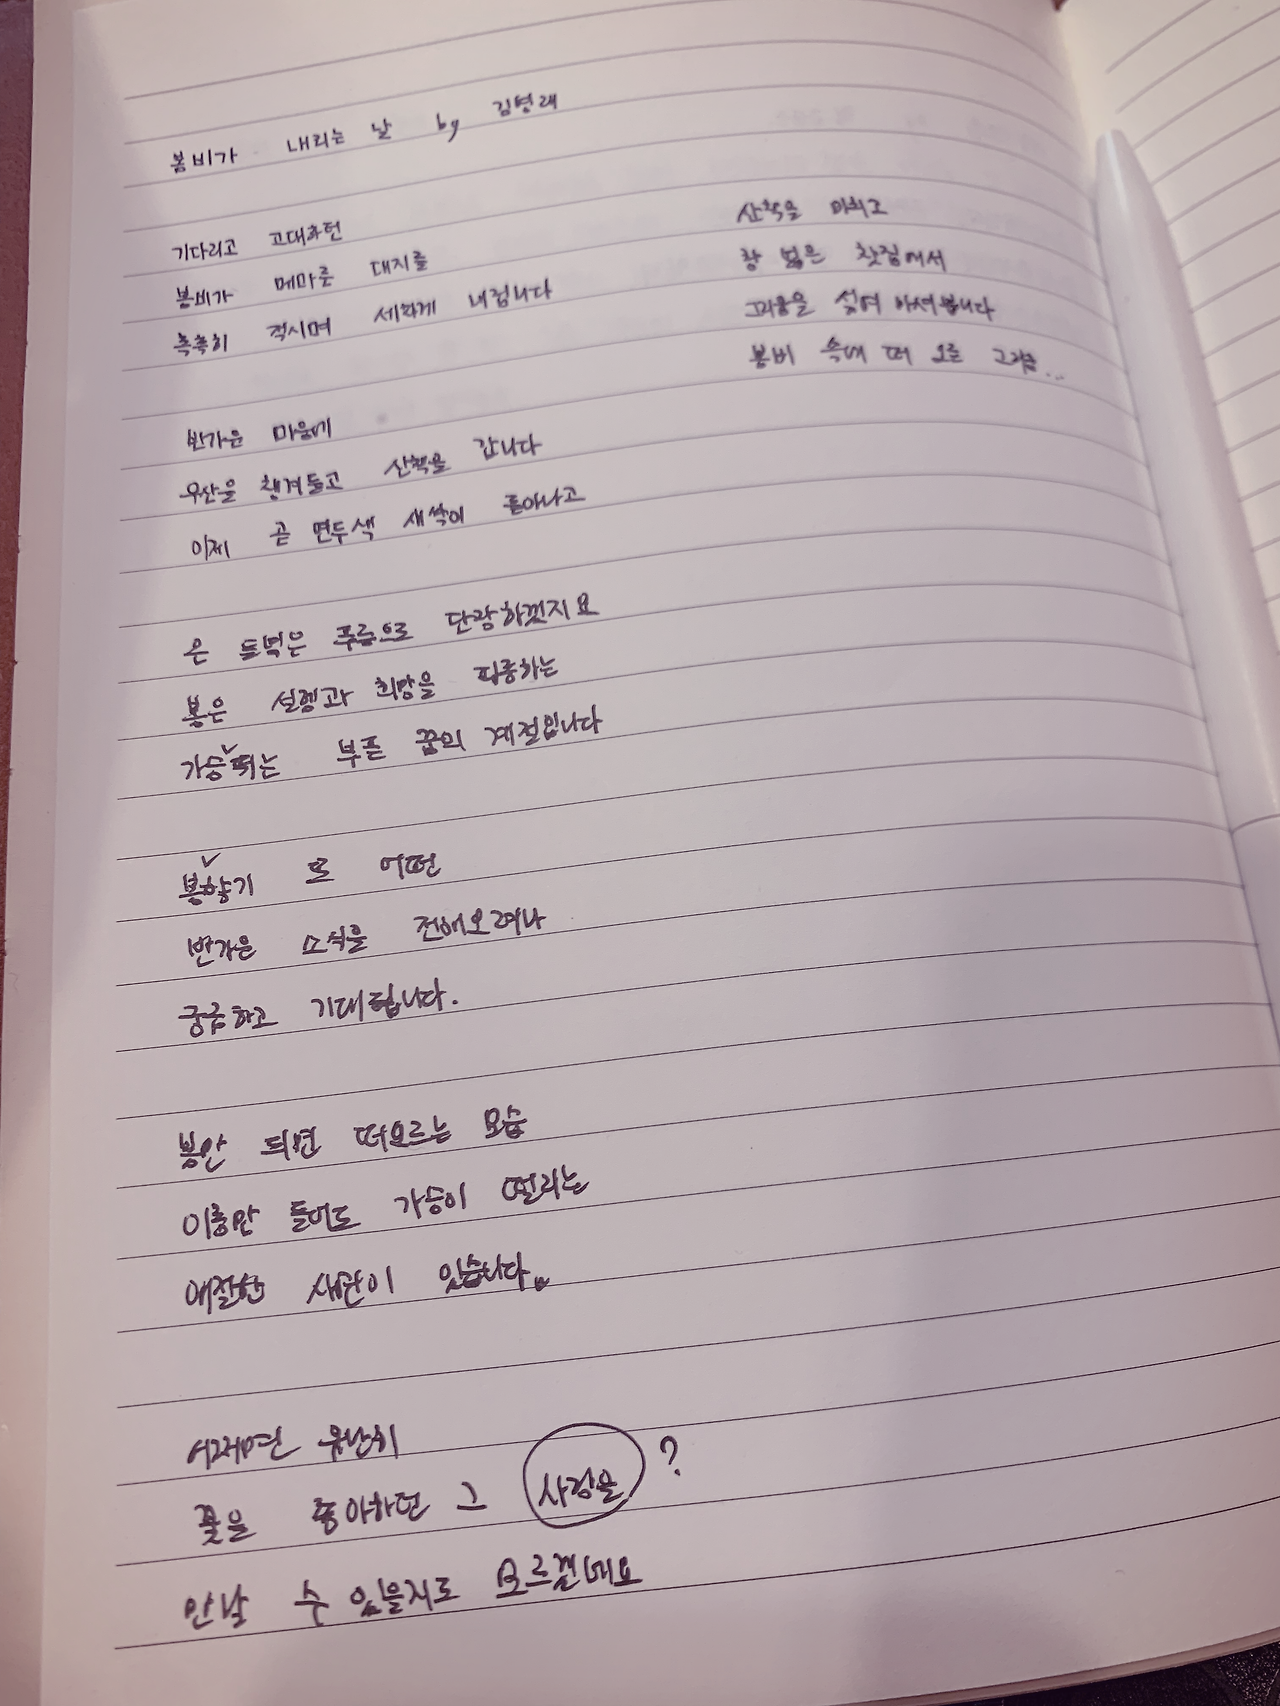 봄비가 내리는 날 by 김병래
기다리고 고대하던
봄비가 메마른 대지를
촉촉히 적시며 세차게 내립니다
반가운 마음에
우산을 챙겨들고 산책을 갑니다
이제 곧 연두색 새싹이 돋아나고
온 들녘은 푸름으로 단장하겠지요
봄은 설렘과 희망을 잉태하는
가슴 뛰는 부푼 꿈의 계절입니다
봄 향기 또 어떤
반가운 소식을 전해오려나
궁금하고 기대됩니다.
봄만 되면 떠오르는 모습
이름만 들어도 가슴이 떨리는
애절한 사연이 있습니다
어쩌면 유난히
꽃을 좋아하던 그 사람을 ?
만날 수 있을지도 모르겠네요
산책을 마치고
창 넓은 찻집에서
그리움을 섞어 마셔봅니다
봄비 속에 떠 오른 그리움...